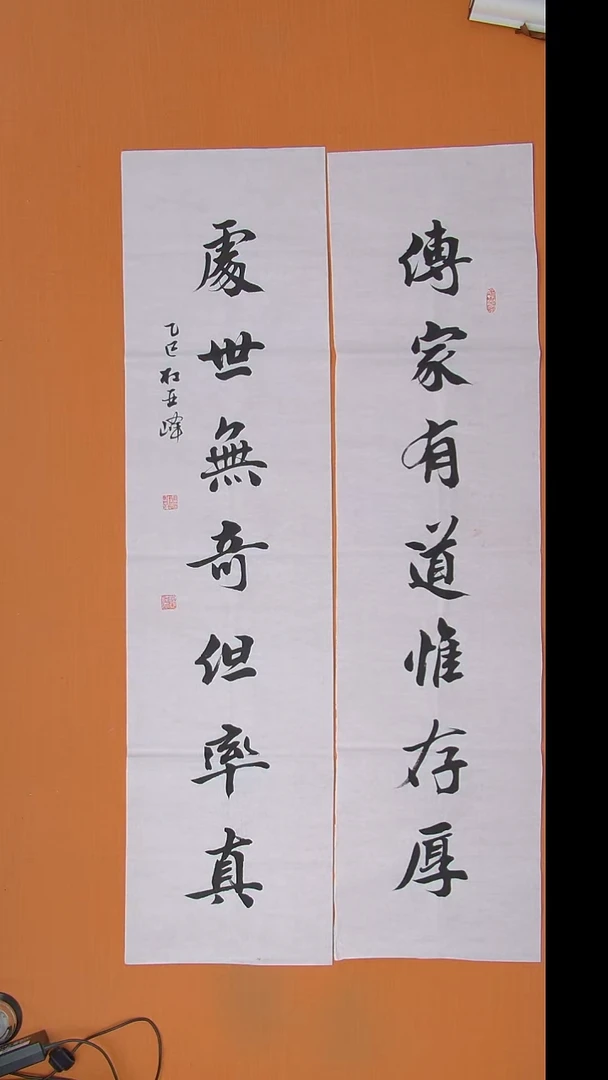 傳家有道惟存厚
處世無奇但率真
乙巳杜亚峰